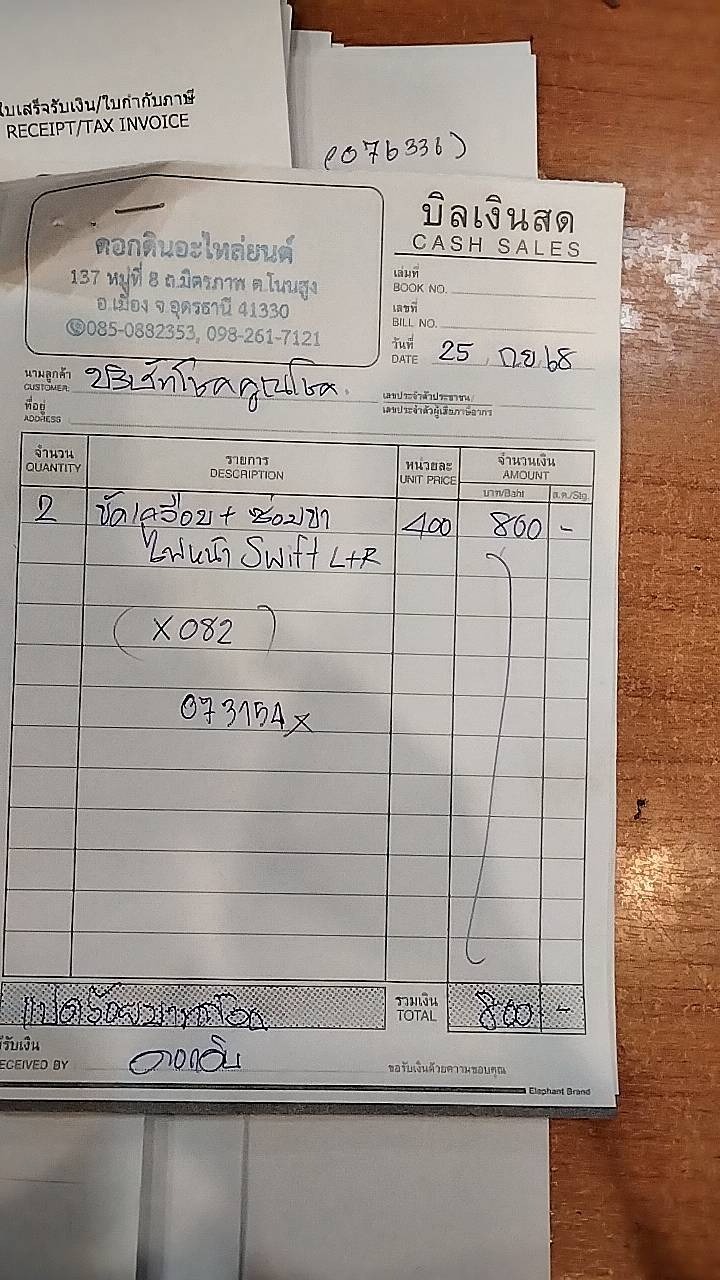 ใบเสร็จรับเงิน/ใบกำกับภาษี
RECEIPT/TAX INVOICE
(076336)
ดอกดินอะไหล่ยนต์
137 หมู่ที่ 8 ถ.มิตรภาพ ต.โนนสูง
อ.เมือง จ.อุดรธานี 41330
085-0882353, 098-261-7121
บิลเงินสด
CASH SALES
เล่มที่
BOOK NO.
เลขที่
BILL NO.
วันที่
DATE 25 กย 68
นามลูกค้า
CUSTOMER: บริษัทโชคคูณโชค
ที่อยู่
ADDRESS
เลขประจำตัวประชาชน/
เลขประจำตัวผู้เสียภาษีอากร
จำนวน รายการ หน่วยละ จำนวนเงิน
QUANTITY DESCRIPTION UNIT PRICE AMOUNT
บาท/Baht ส.ต./Stg.
2 ขัดเคลือบ + ซ่อมขา 400 800 -
ไฟหน้า Swift L+R
(X082)
073154X
แปดร้อยบาทถ้วน รวมเงิน 800 -
TOTAL
ผู้รับเงิน
RECEIVED BY ดอกดิน
ขอรับเงินด้วยความขอบคุณ
Elephant Brand